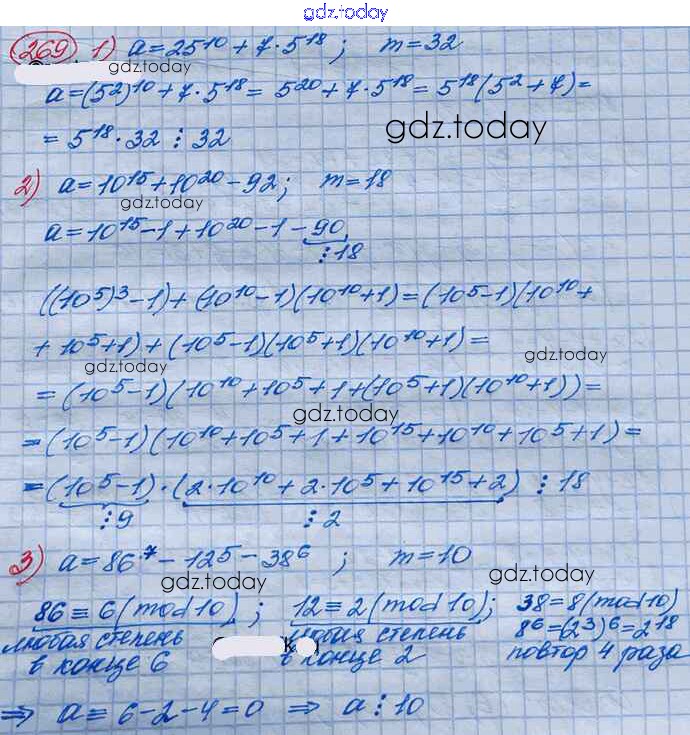 gdz.today
269 1) a=25¹⁰+7·5¹⁸; m=32
gdz.today
a=(5²)¹⁰+7·5¹⁸=5²⁰+7·5¹⁸=5¹⁸(5²+7)=
gdz.today
=5¹⁸·32⋮32
2) a=10¹⁵+10²⁰-92; m=18
gdz.today
a=10¹⁵-1+10²⁰-1-90
⋮18
((10⁵)³-1)+(10¹⁰-1)(10¹⁰+1)=(10⁵-1)(10¹⁰+
+10⁵+1)+(10⁵-1)(10⁵+1)(10¹⁰+1)=
gdz.today
gdz.today
=(10⁵-1)(10¹⁰+10⁵+1+(10⁵+1)(10¹⁰+1))=
gdz.today
=(10⁵-1)(10¹⁰+10⁵+1+10¹⁵+10¹⁰+10⁵+1)=
=(10⁵-1)·(2·10¹⁰+2·10⁵+10¹⁵+2)⋮18
⋮9 ⋮2
3) a=86⁷-12⁵-38⁶; m=10
gdz.today gdz.today
86≡6(mod10); 12≡2(mod10); 38=8(mod10)
любая степень любая степень 8⁶=(2³)⁶=2¹⁸
в конце 6 в конце 2 повтор 4 раза
⇒ a≡6-2-4=0 ⇒ a⋮10
gdz.today